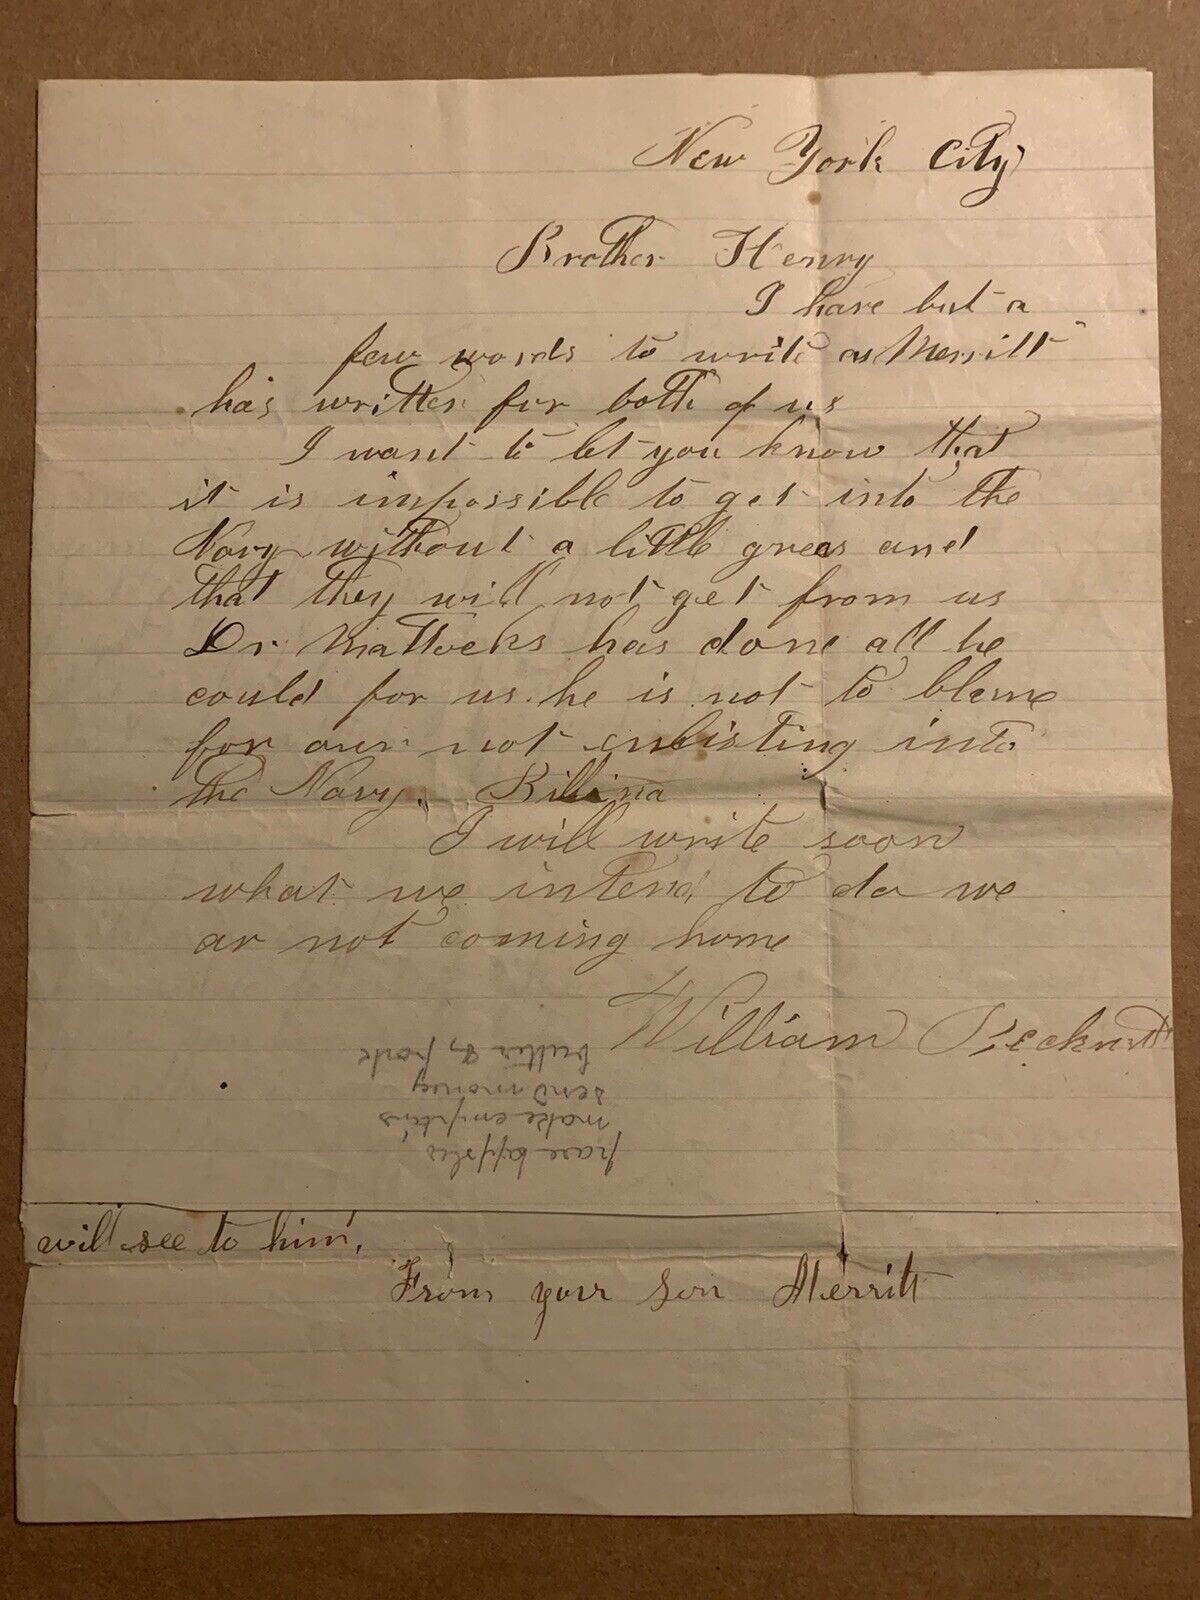 New York City
Brother Henry
I have but a
few words to write as Merritt
has written for both of us
I want to let you know that
it is impossible to get into the
Navy without a little greas and
that they will not get from us
Dr Mattocks has done all he
could for us. he is not to blame
for our not enlisting into
the Navy.
I will write soon
what we intend to do we
ar not coming home
William
pare apples
make emptins
send money
butter & pork
will see to him.
From your Son Merritt